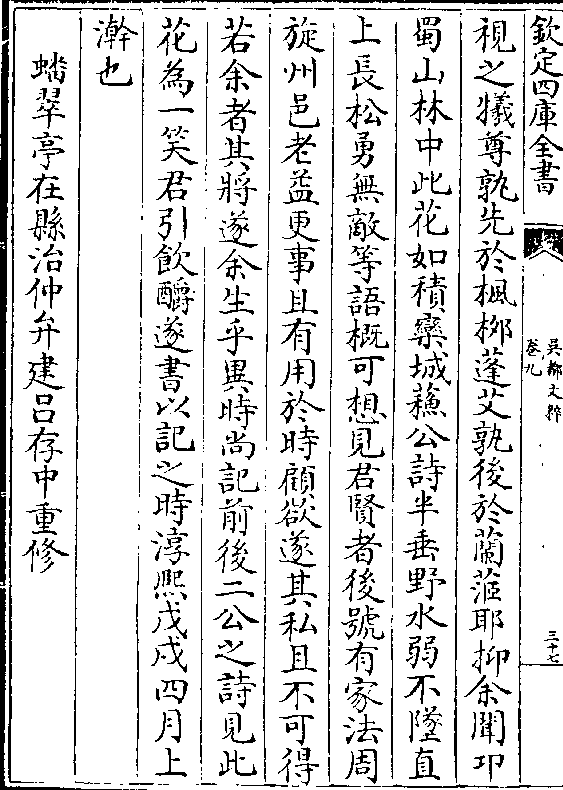 欽定四庫全書
吳都文粹
卷九
三十七
視之犧尊孰先於楓柳蓬艾孰後於蘭茝耶抑余聞卭
蜀山林中此花如積欒城蘓公詩半垂野水弱不墜直
上長松勇無敵等語概可想見君賢者後號有家法周
旋州邑老益更事且有用於時顧欲遂其私且不可得
若余者其將遂余生乎異時尚記前後二公之詩見此
花為一笑君引飲釂遂書以記之時淳熙戊戌四月上
澣也
蟠翠亭在縣治仲弁建呂存中重修